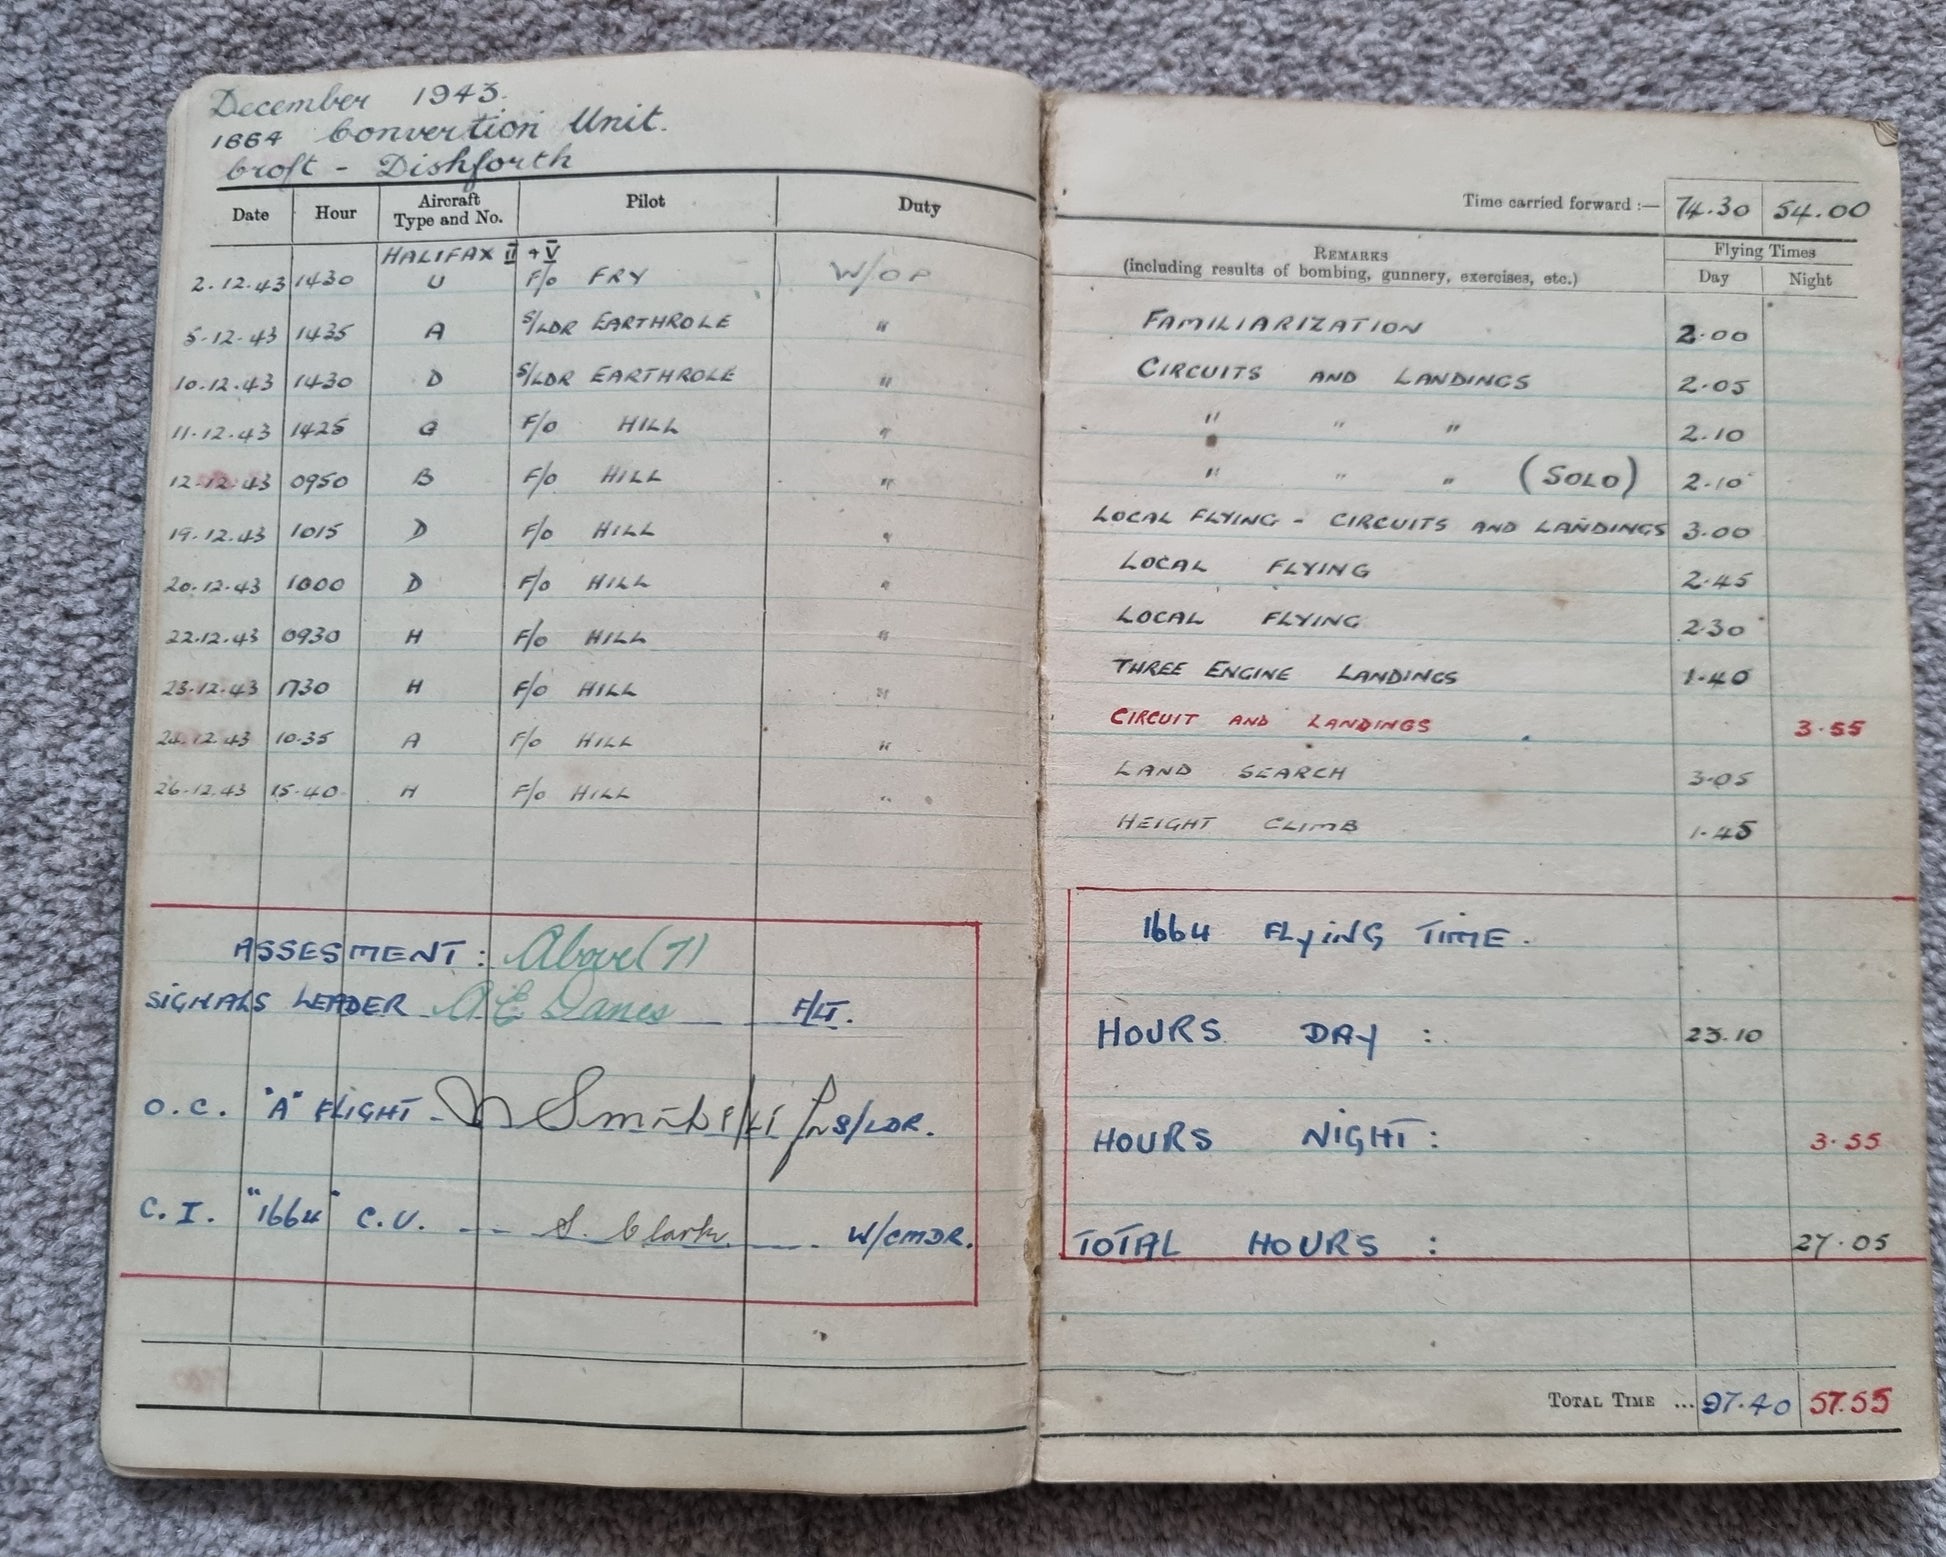 December 1943.
1664 Convertion Unit.
Croft - Dishforth
Date Hour Aircraft Type and No. Pilot Duty
HALIFAX II + V
2.12.43 1430 U F/O FRY W/OP
5.12.43 1435 A S/LDR EARTHROLE "
10.12.43 1430 D S/LDR EARTHROLE "
11.12.43 1425 G F/O HILL "
12.12.43 0950 B F/O HILL "
19.12.43 1015 D F/O HILL "
20.12.43 1000 D F/O HILL "
22.12.43 0930 H F/O HILL "
23.12.43 1730 H F/O HILL "
24.12.43 10.35 A F/O HILL "
26.12.43 15.40 H F/O HILL "
ASSESMENT: Above (7)
SIGNALS LEADER A E Danes F/LT.
O.C. "A" FLIGHT - F/LT S/LDR.
C.I. "1664" C.U. -- S. Clark W/CMDR.
Time carried forward :— 74.30 54.00
REMARKS
(including results of bombing, gunnery, exercises, etc.)
Flying Times
Day Night
FAMILIARIZATION 2.00
CIRCUITS AND LANDINGS 2.05
" " " 2.10
" " " (SOLO) 2.10
LOCAL FLYING - CIRCUITS AND LANDINGS 3.00
LOCAL FLYING 2.45
LOCAL FLYING 2.30
THREE ENGINE LANDINGS 1.40
CIRCUIT AND LANDINGS 3.55
LAND SEARCH 3.05
HEIGHT CLIMB 1.45
1664 FLYING TIME.
HOURS DAY : 23.10
HOURS NIGHT: 3.55
TOTAL HOURS : 27.05
TOTAL TIME ... 97.40 57.55